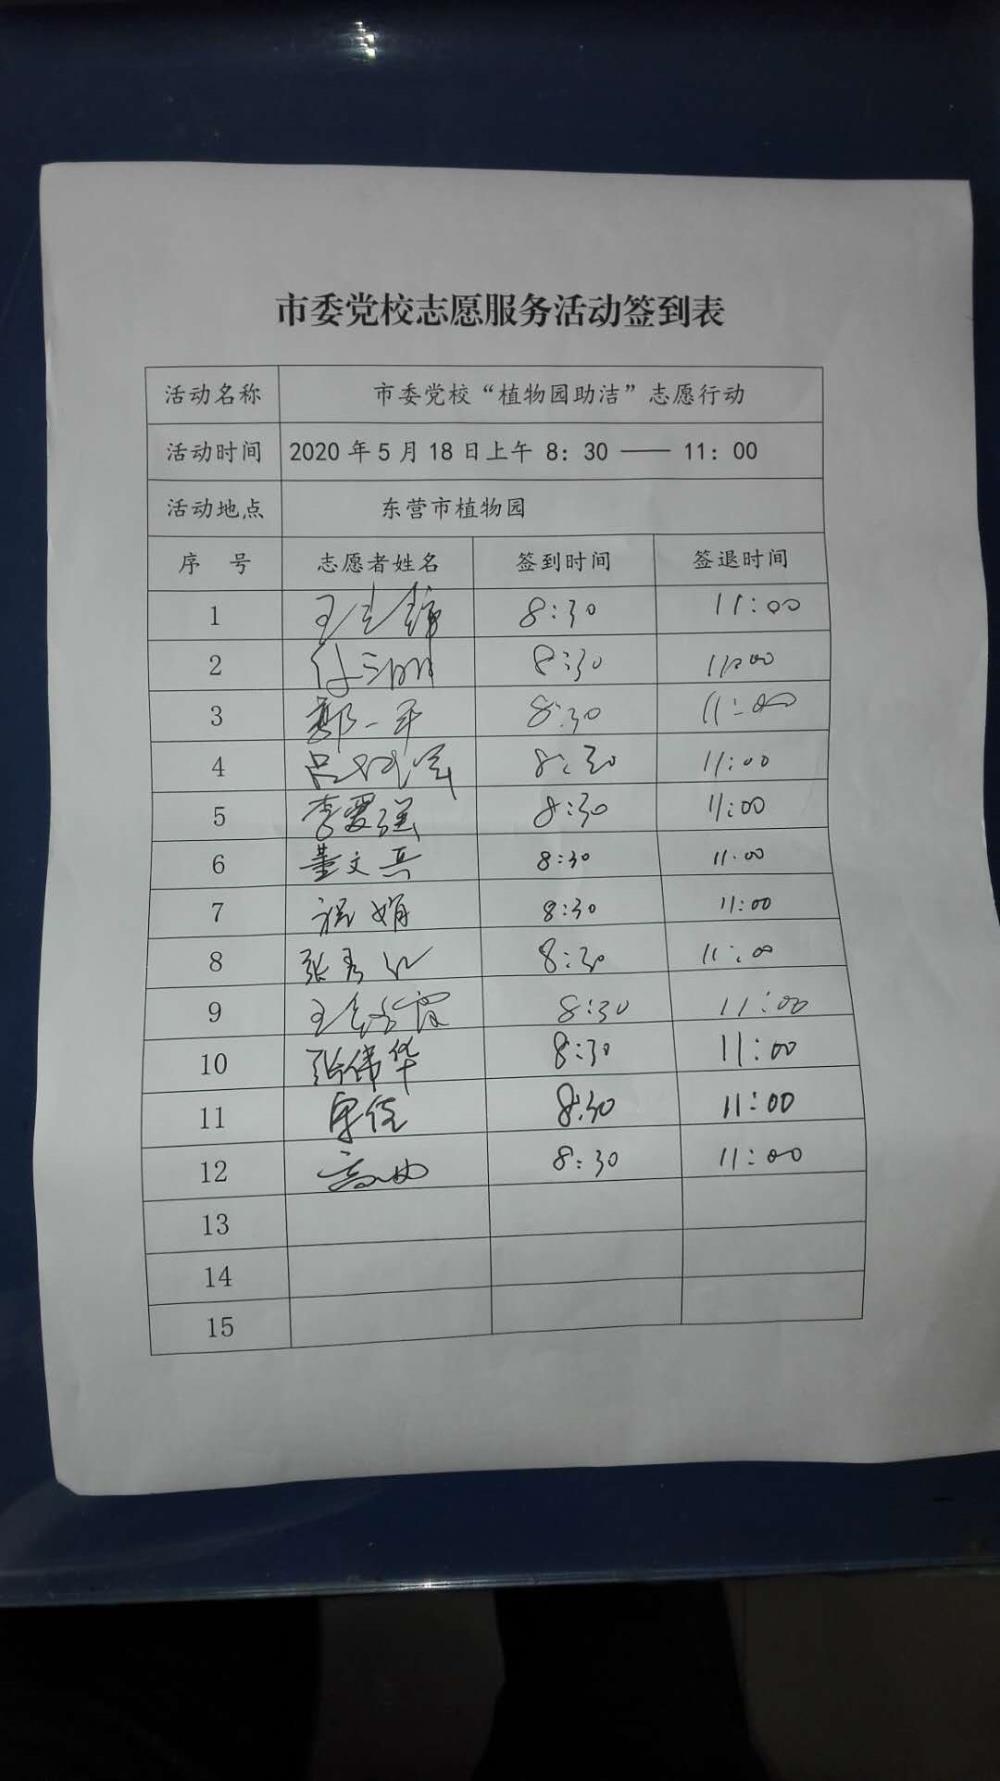 市委党校志愿服务活动签到表
活动名称 市委党校“植物园助洁”志愿行动
活动时间 2020 年 5 月 18 日上午 8: 30 —— 11: 00
活动地点 东营市植物园
序 号 志愿者姓名 签到时间 签退时间
1 8:30 11:00
2 8:30 11:00
3 郭一平 8:30 11:00
4 8:30 11:00
5 李爱强 8:30 11:00
6 董文兵 8:30 11:00
7 8:30 11:00
8 8:30 11:00
9 8:30 11:00
10 张伟华 8:30 11:00
11 8:30 11:00
12 8:30 11:00
13
14
15